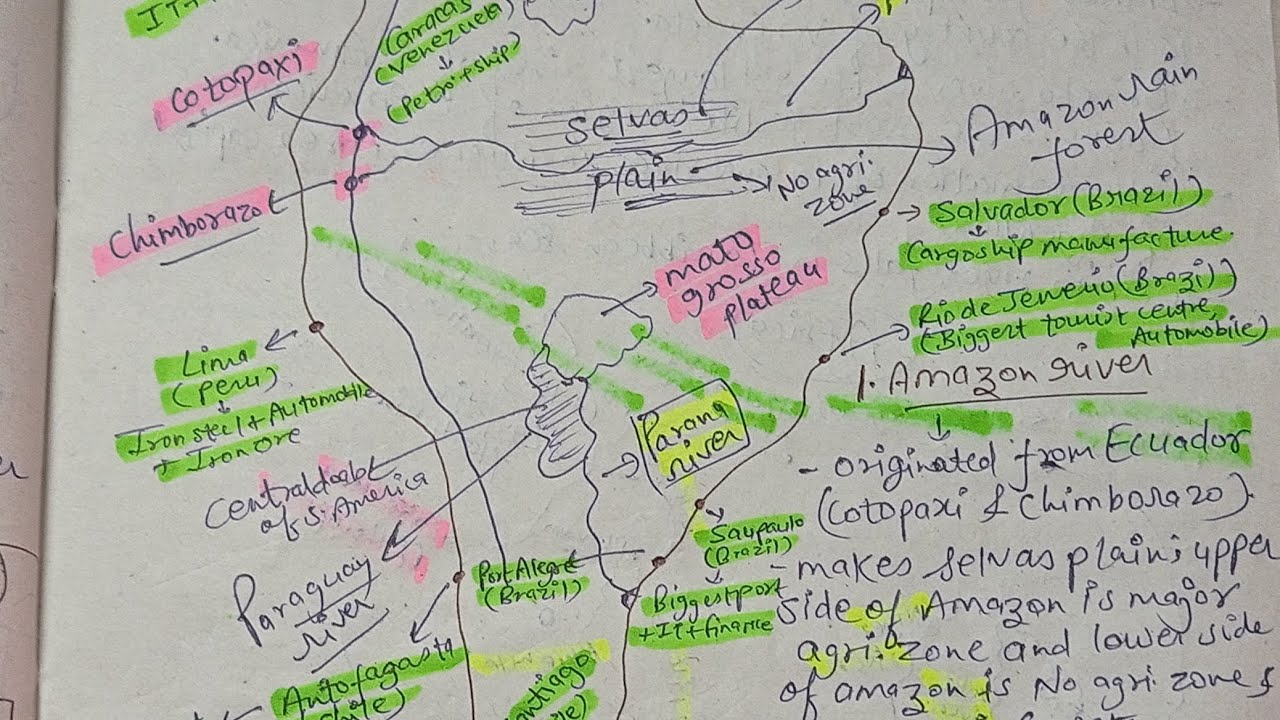 IT+
Caracas
(Venezuela)
↓
(Petro+ship)
Cotopaxi
Chimborazo
Selvas
plain
No agri.
zone
Amazon rain
forest
Salvador (Brazil)
↓
Cargoship manufacture.
Rio de Jenerio (Brazil)
(Biggest tourist centre,
Automobile)
mato
grosso
plateau
Lima
(Peru)
↓
Iron steel + Automobile
+ Iron ore
central
of S. America
Paraguay
river
Parana
river
Saupaulo
(Brazil)
↓
Biggest port
+ IT + finance
Port Alegre
(Brazil)
Antofagasta
1. Amazon river
↓
- originated from Ecuador
(Cotopaxi & Chimborazo)
- makes selvas plain; upper
side of Amazon is major
agri. zone and lower side
of amazon is No agri. zone &